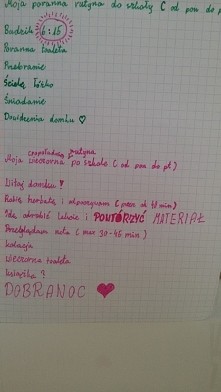 Moja poranna rutyna do szkoły ( od pon do p
Budzik 6:15
Poranna toaleta
Przebranie
Ścielę łóżko
Śniadanie
Do widzenia domku ♡
popołudniowa rutyna
Moja wieczorna po szkole ( od pon do pt )
Witaj domku !
Robię herbatę i odpoczywam ( przez min )
Idę odrobić lekcje i POWTÓRZYĆ MATERIAŁ
Przeglądam neta ( max 30-45 min )
kolacja
wieczorna toaleta
książka ?
DOBRANOC ♥